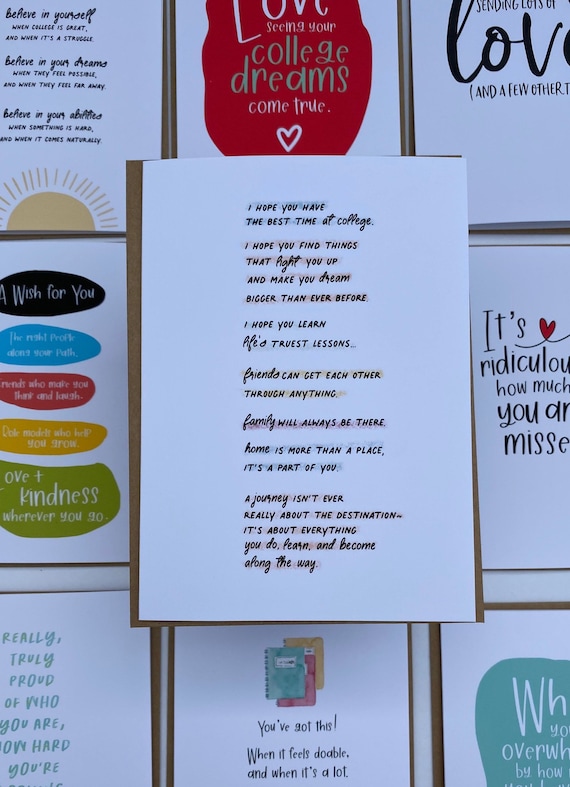 believe in yourself
WHEN COLLEGE IS GREAT,
AND WHEN IT'S A STRUGGLE.
believe in your dreams
WHEN THEY FEEL POSSIBLE,
AND WHEN THEY FEEL FAR AWAY.
believe in your abilities
WHEN SOMETHING IS HARD,
AND WHEN IT COMES NATURALLY.
Love
seeing your
college
dreams
come true.
SENDING LOTS OF
love
(AND A FEW OTHER
I HOPE YOU HAVE
THE BEST TIME at college.
I HOPE YOU FIND THINGS
THAT light YOU UP
AND MAKE YOU dream
BIGGER THAN EVER BEFORE.
I HOPE YOU LEARN
life's TRUEST LESSONS...
friends CAN GET EACH OTHER
THROUGH ANYTHING.
family WILL ALWAYS BE THERE.
home IS MORE THAN A PLACE,
IT'S A PART OF YOU.
a journey ISN'T EVER
REALLY ABOUT THE DESTINATION~
IT'S ABOUT EVERYTHING
you do, learn, and become
along the way.
A Wish for You
The right people
along your path.
Friends who make you
think and laugh.
Role models who help
you grow.
Love +
kindness
wherever you go.
It's
ridiculou
how much
you ar
misse
REALLY,
TRULY
PROUD
OF WHO
YOU ARE,
HOW HARD
YOU'RE
You've got this!
When it feels doable,
and when it's a lot.
Wh
yo
overwh
by how